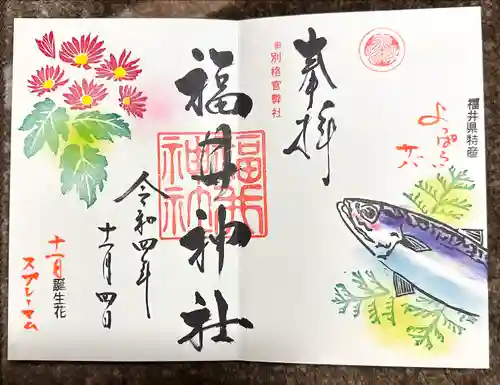 奉拝
旧別格官幣社
福井県特産
よっぱらい
サバ
福井神社
福井神社
令和四年
十一月四日
十一月誕生花
スプレーマム